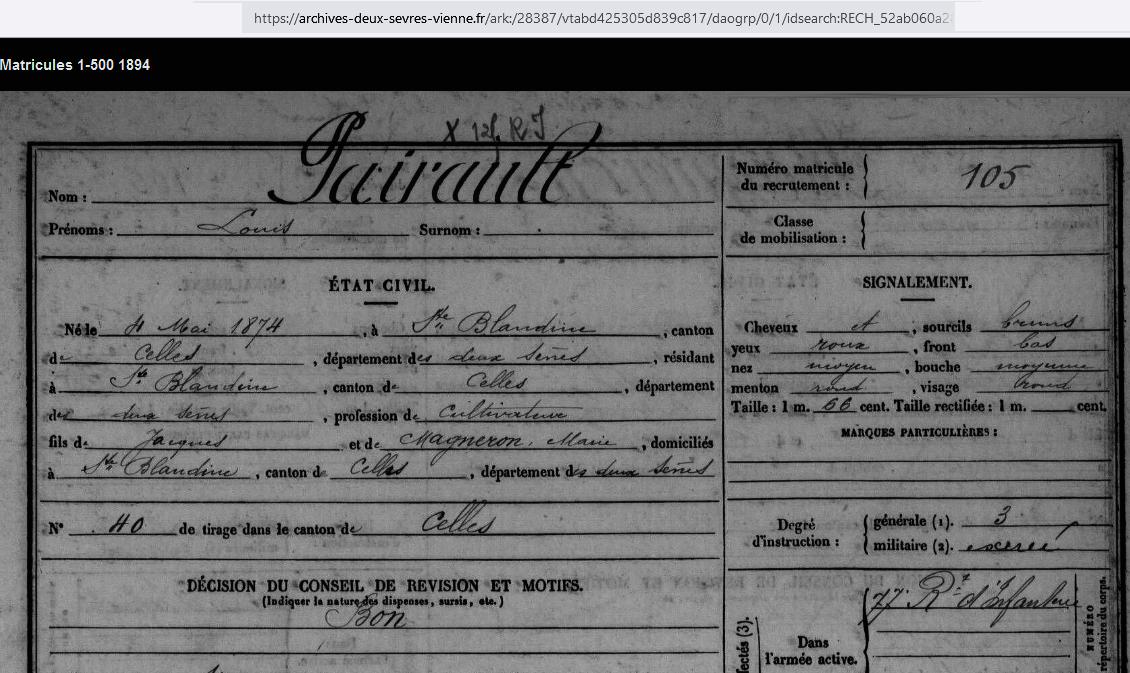 https://archives-deux-sevres-vienne.fr/ark:/28387/vtabd425305d839c817/daogrp/0/1/idsearch:RECH_52ab060a2
Matricules 1-500 1894
Nom : Pairault
Prénoms : Louis Surnom :
Numéro matricule du recrutement : 105
Classe de mobilisation :
ÉTAT CIVIL.
Né le 4 Mai 1874, à Ste Blandine, canton
de Celles, département des deux Sèvres, résidant
à Ste Blandine, canton de Celles, département
des deux Sèvres, profession de Cultivateur
fils de Jacques et de Magneron, Marie, domiciliés
à Ste Blandine, canton de Celles, département des deux Sèvres
N° 40 de tirage dans le canton de Celles
DÉCISION DU CONSEIL DE REVISION ET MOTIFS.
(Indiquer la nature des dispenses, sursis, etc.)
Bon
SIGNALEMENT.
Cheveux et, sourcils bruns
yeux roux, front bas
nez moyen, bouche moyenne
menton rond, visage rond
Taille : 1 m. 66 cent. Taille rectifiée : 1 m. cent.
MARQUES PARTICULIÈRES :
Degré d'instruction :
générale (1). 3
militaire (2). exercé
Dans l'armée active.
77e Rt d'Infanterie
NUMÉRO
répertoire du corps.